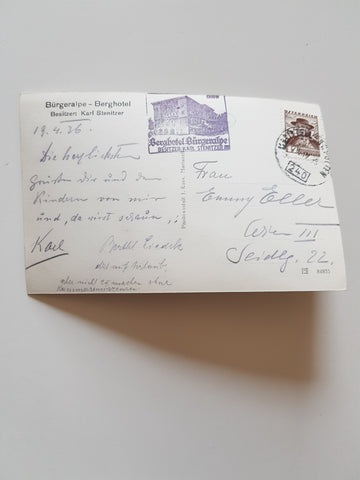 Bürgeralpe - Berghotel
Besitzer: Karl Stenitzer
19.4.36.
Die herzlichsten
Grüße dir und den
Kindern von mir
und, da wirst schaun,
Karl
auf Urlaub
aber nicht zu machen ohne
Berghotel Bürgeralpe
BESITZER KARL STENITZER
ÖSTERREICH
Frau
Emmy Eller
Wien III
Seidlg. 22.